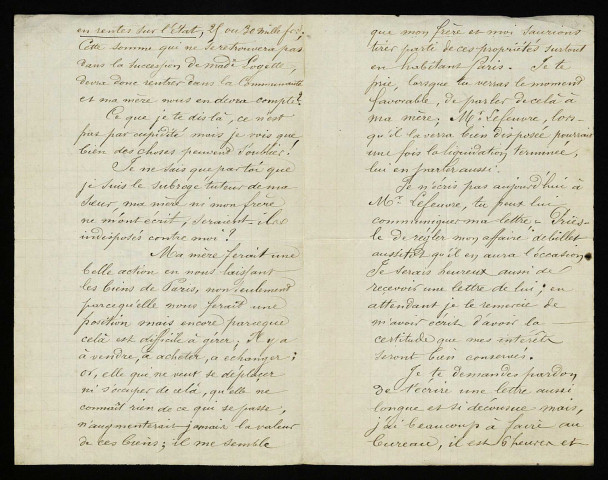 en rentes sur l'Etat, 25 ou 30 mille frs;
Cette somme qui ne se retrouvera pas
dans la succession de made Logette,
devra donc rentrer dans la Communauté
et ma mère nous en devra compte?
Ce que je te dis là, ce n'est
pas par cupidité mais je vois que
bien des choses peuvent s'oublier!
Je ne sais que par toi que
je suis le subrogé tuteur de ma
sœur ma mère ni mon frère
ne m'ont écrit, seraient-ils
indisposés contre moi?
Ma mère ferait une
belle action en nous laissant
les biens de Paris, non seulement
parcequ'elle nous ferait une
position mais encore parceque
celà est difficile à gérer, Il y a
à vendre, à acheter, à echanger;
et, elle qui ne veut se déplacer
ni s'occuper de celà, qu'elle ne
connaît rien de ce qui se passe,
n'augmenterait jamais la valeur
de ces biens; il me semble
que mon frère et moi saurions
tirer parti de ces propriétés surtout
en habitant Paris. Je te
prie, lorsque tu verras le moment
favorable, de parler de celà à
ma mère; Mr Lefeuvre, lors-
qu'il la verra bien disposée pourrait
une fois la liquidation terminée,
lui en parler aussi.
Je n'écris pas aujourd'hui à
Mr Lefeuvre, tu peux lui
communiquer ma lettre - Pries-
le de régler mon affaire de billet
aussitôt qu'il en aura l'occasion
Je serais heureux aussi de
recevoir une lettre de lui; en
attendant je le remercie de
m'avoir écrit d'avoir la
certitude que mes intérêts
seront bien conservés.
Je te demandes pardon
de t'écrire une lettre aussi
longue et si décousue mais,
j'ai beaucoup à faire au
bureau, il est 6 heures et